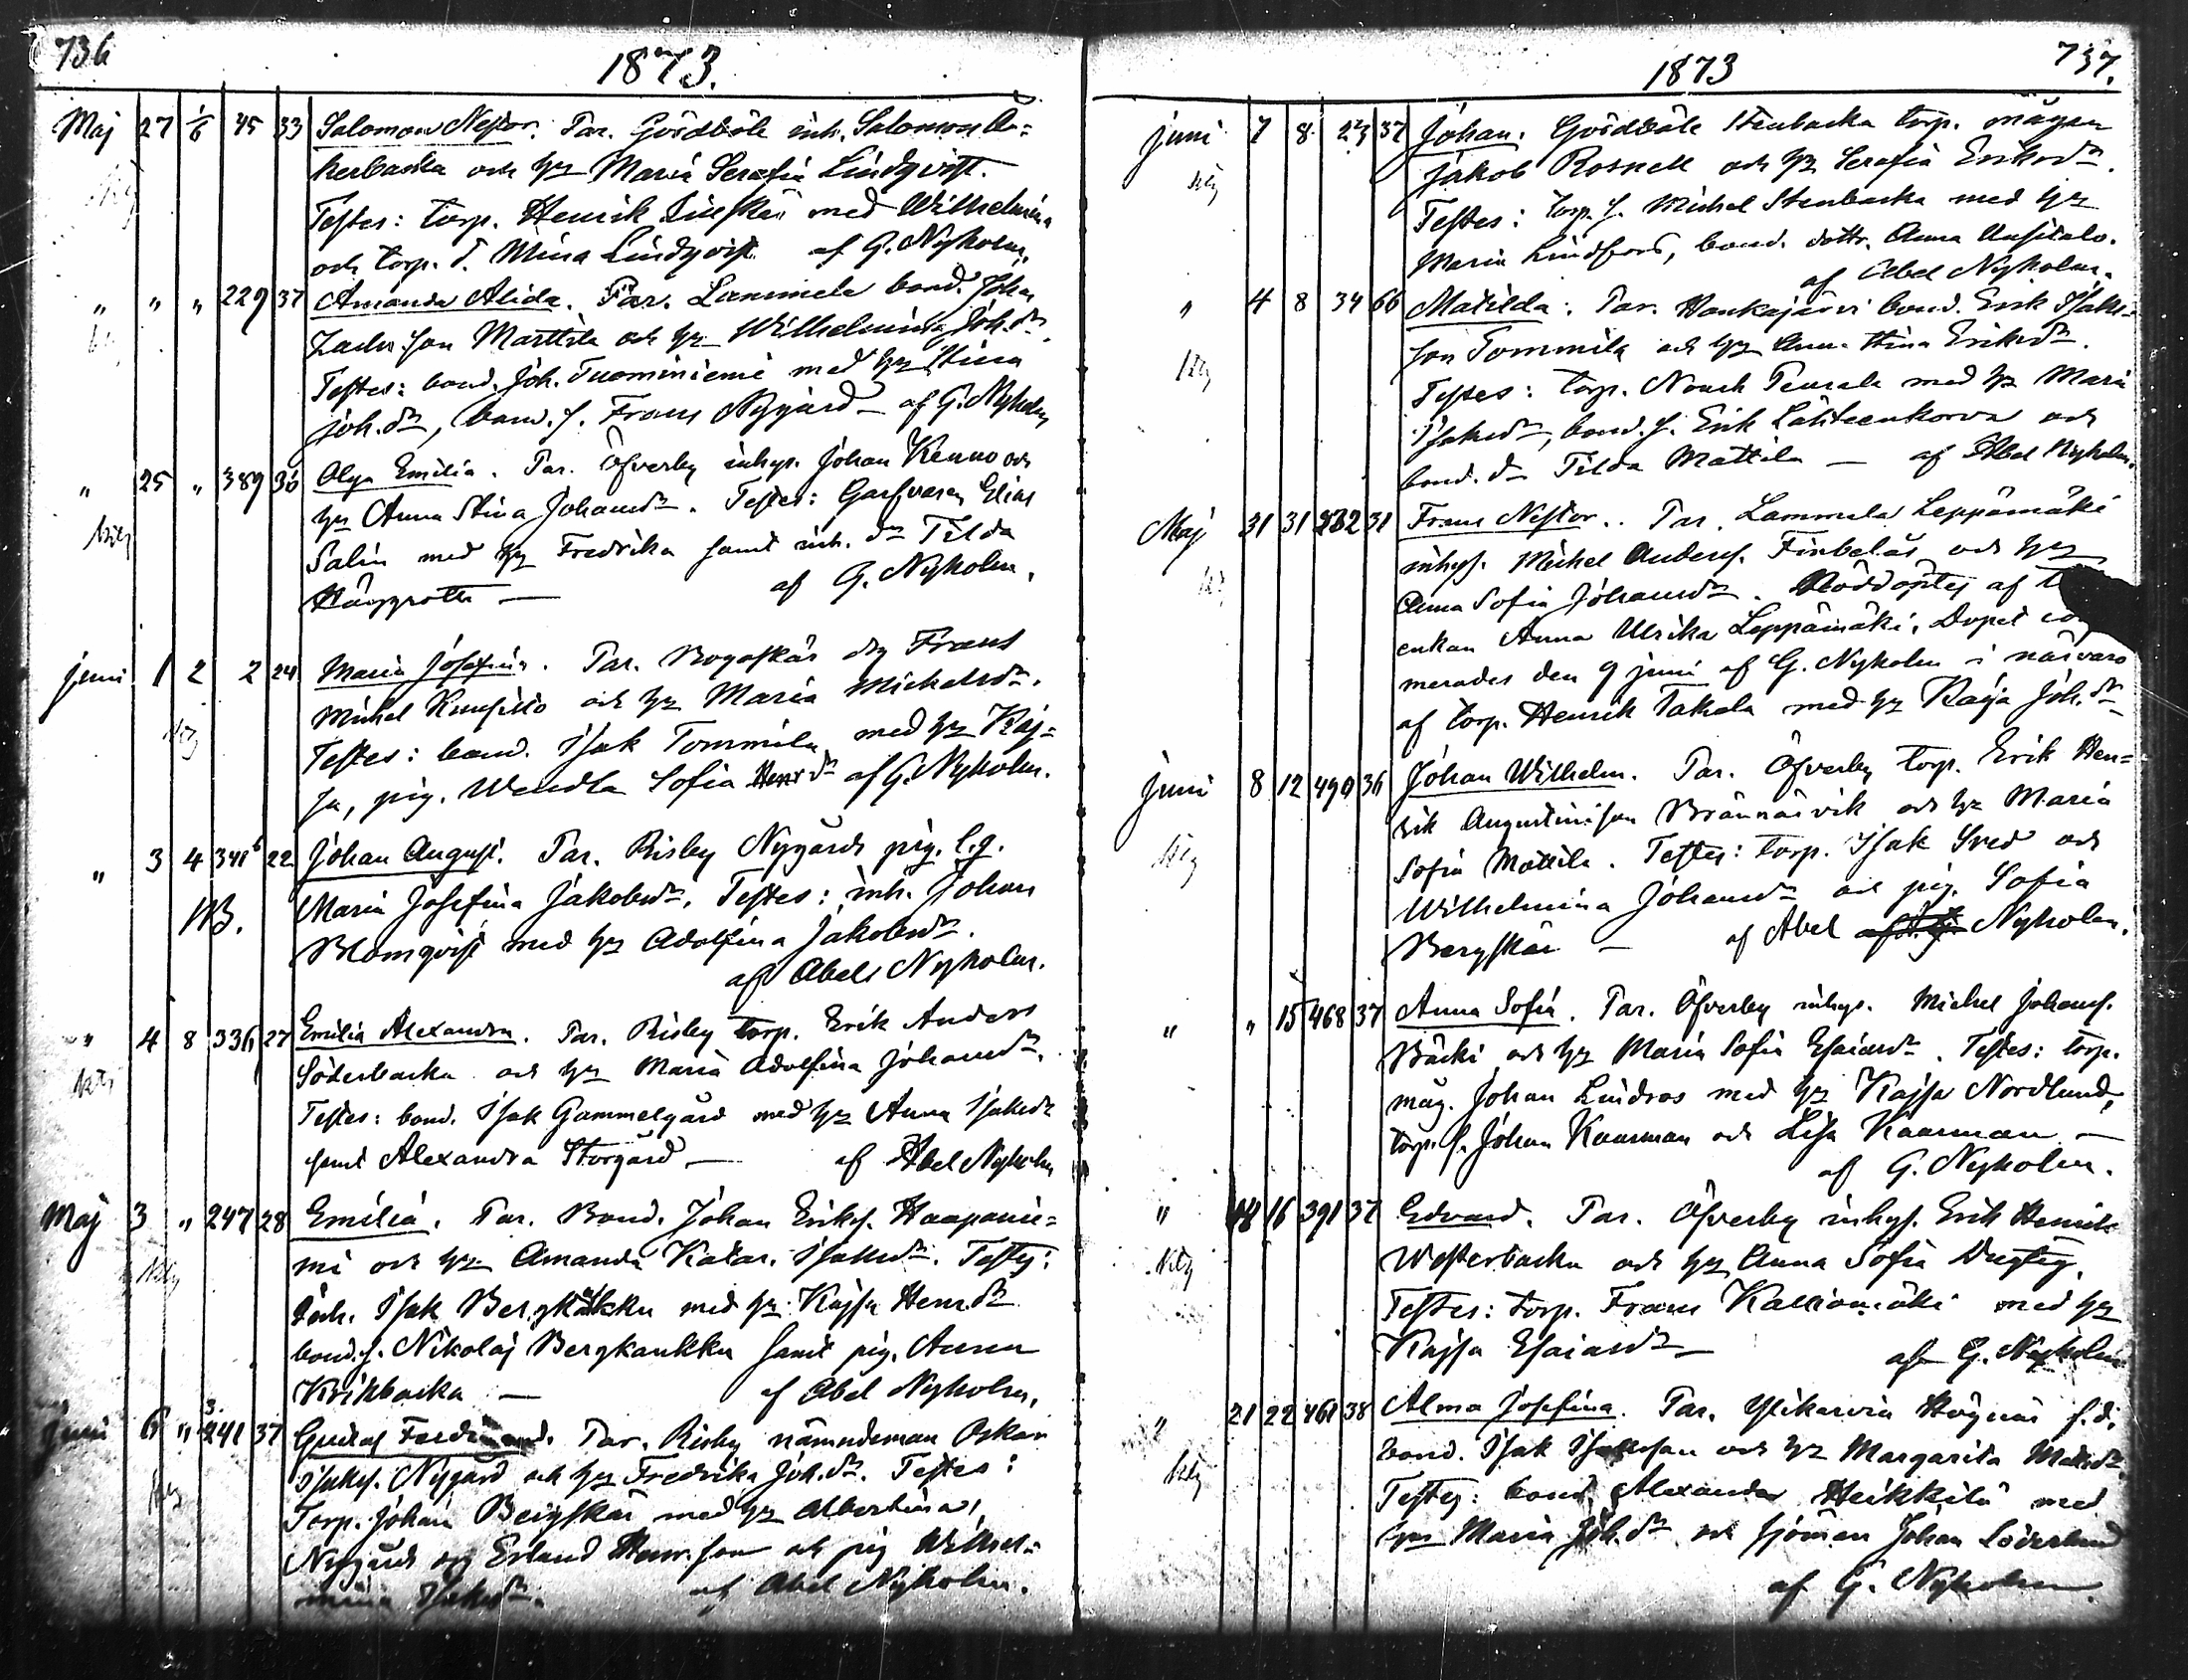 736
1873.
Maj 27 1/6 45 33 Salomon Nestor. Par. Gördböle inh. Salomon Å=
kerbacka och h. Maria Serafia Lindqvist.
Testes: torp. Henrik med Wilhelmina
och torp. d. Mina Lindqvist af G. Nyholm.
" " " 229 37 Amanda Alida. Par. Lammela bond. Johan
Zach.son Marttila och h. Wilhelmina Joh.dr
Testes: bond. Joh. Tuominiemi med h. Stina
Joh.dr, bond. s. Frans Nygård – af G. Nyholm
" 25 " 389 36 Olga Emilia. Par. Öfverby inhys. Johan Kenno och
h. Anna Stina Johansdr. Testes: Garfvaren Elias
Salin med h. Fredrika samt inh. dr Tilda
Häggroth — af G. Nyholm.
Juni 1 2 2 24 Maria Josefina. Par. Bogaskär drg Frans
Michel Kuusisto och h. Maria Michelsdr.
Testes: bond. Isak Tommila med h. Kaj=
sa, pig. Wendla Sofia Henr.dr af G. Nyholm.
" 3 4 341 22 Johan August. Par. Risby Nygårds pig. l.g.
NB. Maria Josefina Jakobsdr. Testes: inh. Johan
Blomqvist med h. Adolfina Jakobsdr.
af Abel Nyholm.
" 4 8 336 27 Emilia Alexandra. Par. Risby torp. Erik Anders
Söderbacka och h. Maria Adolfina Johansdr.
Testes: bond. Isak Gammelgård med h. Anna Isaksdr
samt Alexandra Storgård — af Abel Nyholm
Maj 3 " 247 28 Emilia. Par. Bond. Johan Eriks. Haapanie=
mi och h. Amanda Katar. Isaksdr. Testes:
Inh. Isak Bergkaukku med h. Kajsa Henr.dr
bond. s. Nikolaj Bergkaukku samt pig. Anna
Krikbacka — af Abel Nyholm.
Juni 6 " 241 37 Gustaf Ferdinand. Par. Risby nämndeman Oskar
Isaks. Nygård och h. Fredrika Joh.dr. Testes:
Torp. Johan Bergskär med h. Albertina,
Nygårds drg Erland Henr.son och pig Wilhel=
mina Isaksdr. af Abel Nyholm.
1873 737.
Juni 7 8 223 37 Johan. Gördböle Stenbacka torp. mågen
Jakob Rosnell och h. Serafia Eriksdr.
Testes: torp. s. Michel Stenbacka med h.
Maria Lindfors, bond. dottr. Anna Uusitalo.
af Abel Nyholm.
" 4 8 34 66 Matilda. Par. Honkajärvi bond. Erik Isaks=
son Tommila och h. Anna Stina Eriksdr.
Testes: torp. Noach Peurala med h. Maria
Isaksdr, bond. s. Erik Lähteenkorva och
bond. dr Tilda Mattila — af Abel Nyholm.
Maj 31 31 232 31 Frans Nestor. Par. Lammela Leppämäki
inhys. Michel Anders. Finbelås och h.
Anna Sofia Johansdr. Nöddöptes af
enkan Anna Ulrika Leppämäki. Dopet
merades den 9 juni af G. Nyholm i närvaro
af torp. Henrik Takala med h. Kajsa Joh.dr
Juni 8 12 490 36 Johan Wilhelm. Par. Öfverby torp. Erik Hen=
rik Augustinison Brännäsvik och h. Maria
Sofia Mattila. Testes: torp. Isak Sved och
Wilhelmina Johansdr och pig. Sofia
Bergskär — af Abel Nyholm.
" " 15 468 37 Anna Sofia. Par. Öfverby inhys. Michel Johans.
Bäcki och h. Maria Sofia Esaiasdr. Testes: torp.
måg. Johan Lindroos med h. Kajsa Nordlund,
torp. s. Johan Kaarman och Lisa Kaarman —
af G. Nyholm.
" 18 16 391 37 Edvard. Par. Öfverby inhys. Erik Henrik
Westerbacka och h. Anna Sofia Dugtig.
Testes: torp. Frans Kalliomäki med h.
Kajsa Esaiasdr — af G. Nyholm
" 21 22 461 38 Alma Josefina. Par. Ylikarvia Högnäs f.d.
bond. Isak Isaksson och h. Margarita Matsdr.
Testes: bond. Alexander Heikkilä med
h. Maria Joh.dr och sjöman Johan Söderlund
af G. Nyholm.